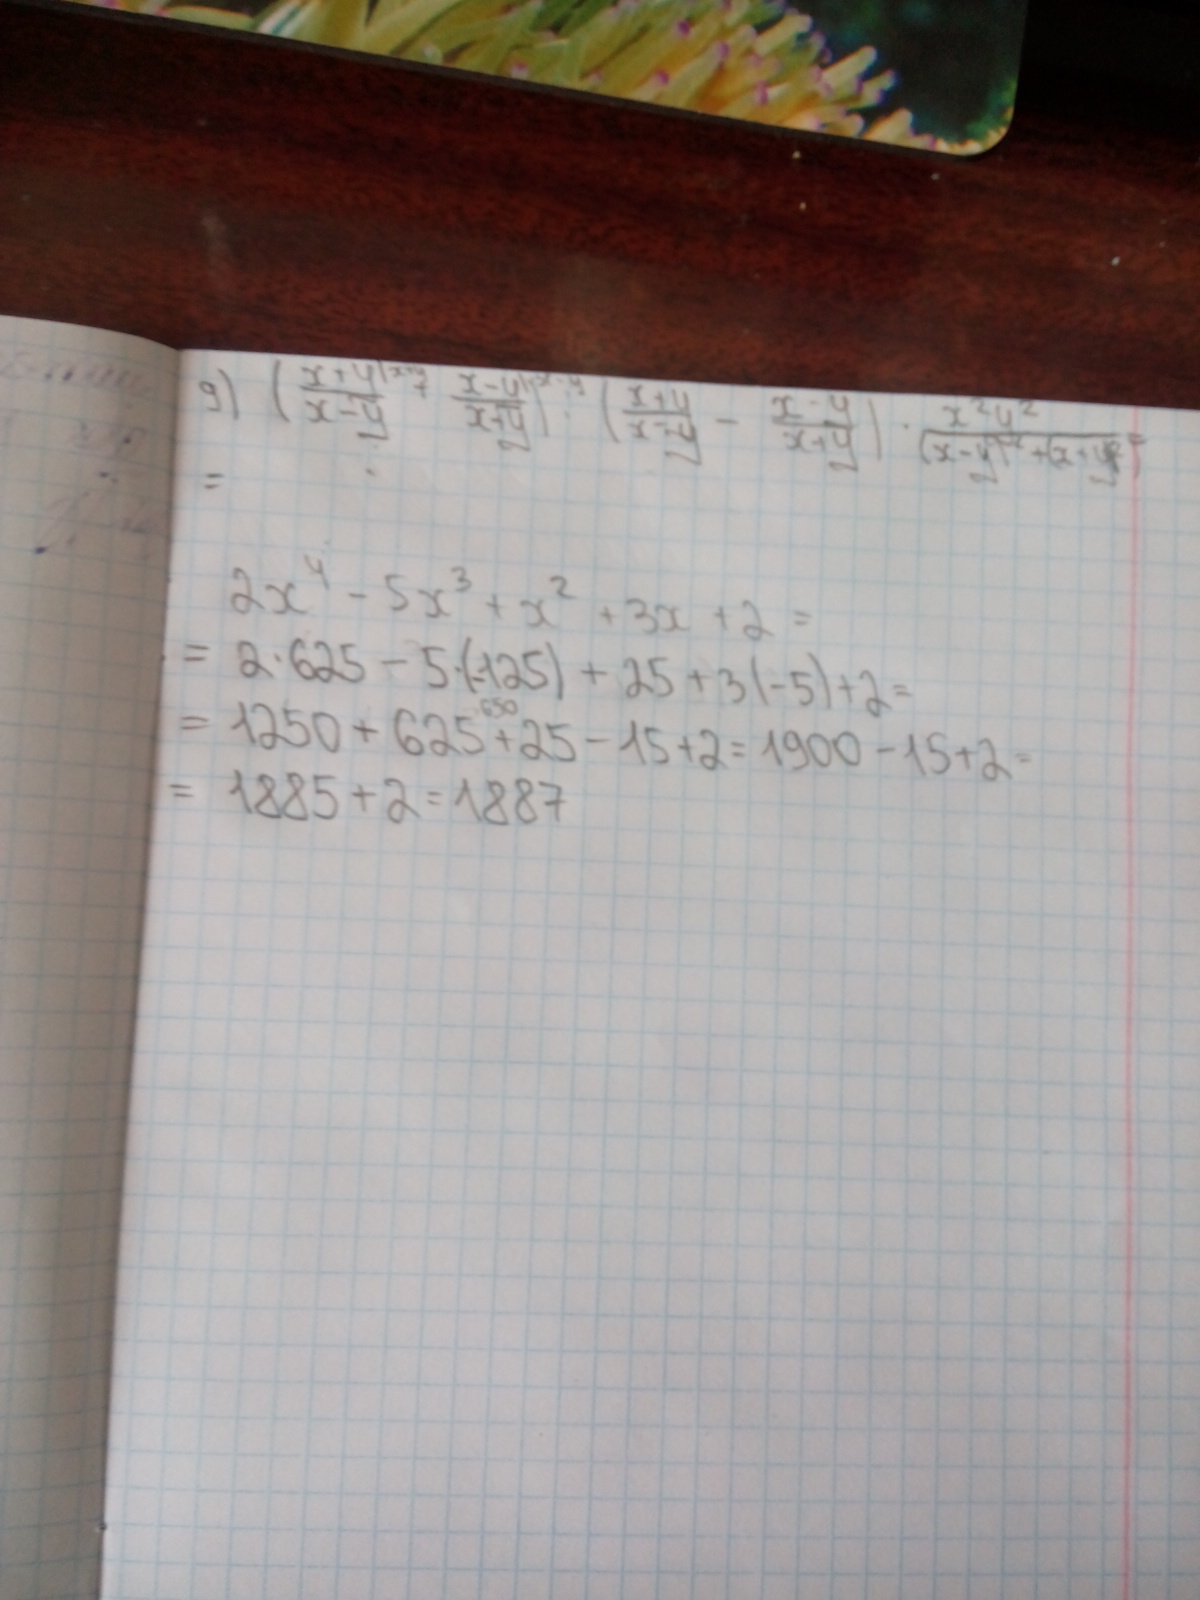 9) ( (x+y)/(x-y) |x+y + (x-y)/(x+y) |x-y ) : ( (x+y)/(x-y) - (x-y)/(x+y) ) · x²y²/((x-y)²+(x+y)²) =
=
2x⁴ - 5x³ + x² + 3x + 2 =
= 2·625 - 5·(-125) + 25 + 3(-5) + 2 =
650
= 1250 + 625 + 25 - 15 + 2 = 1900 - 15 + 2 =
= 1885 + 2 = 1887